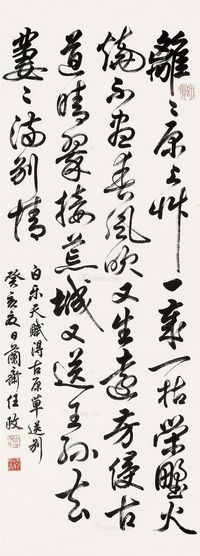 離〻原上艸一歲一枯榮野火
燒不盡春風吹又生遠芳侵古
道晴翠接荒城又送王孫去
萋〻滿別情
白乐天賦得古原草送别
癸亥夏日蘭齋任政